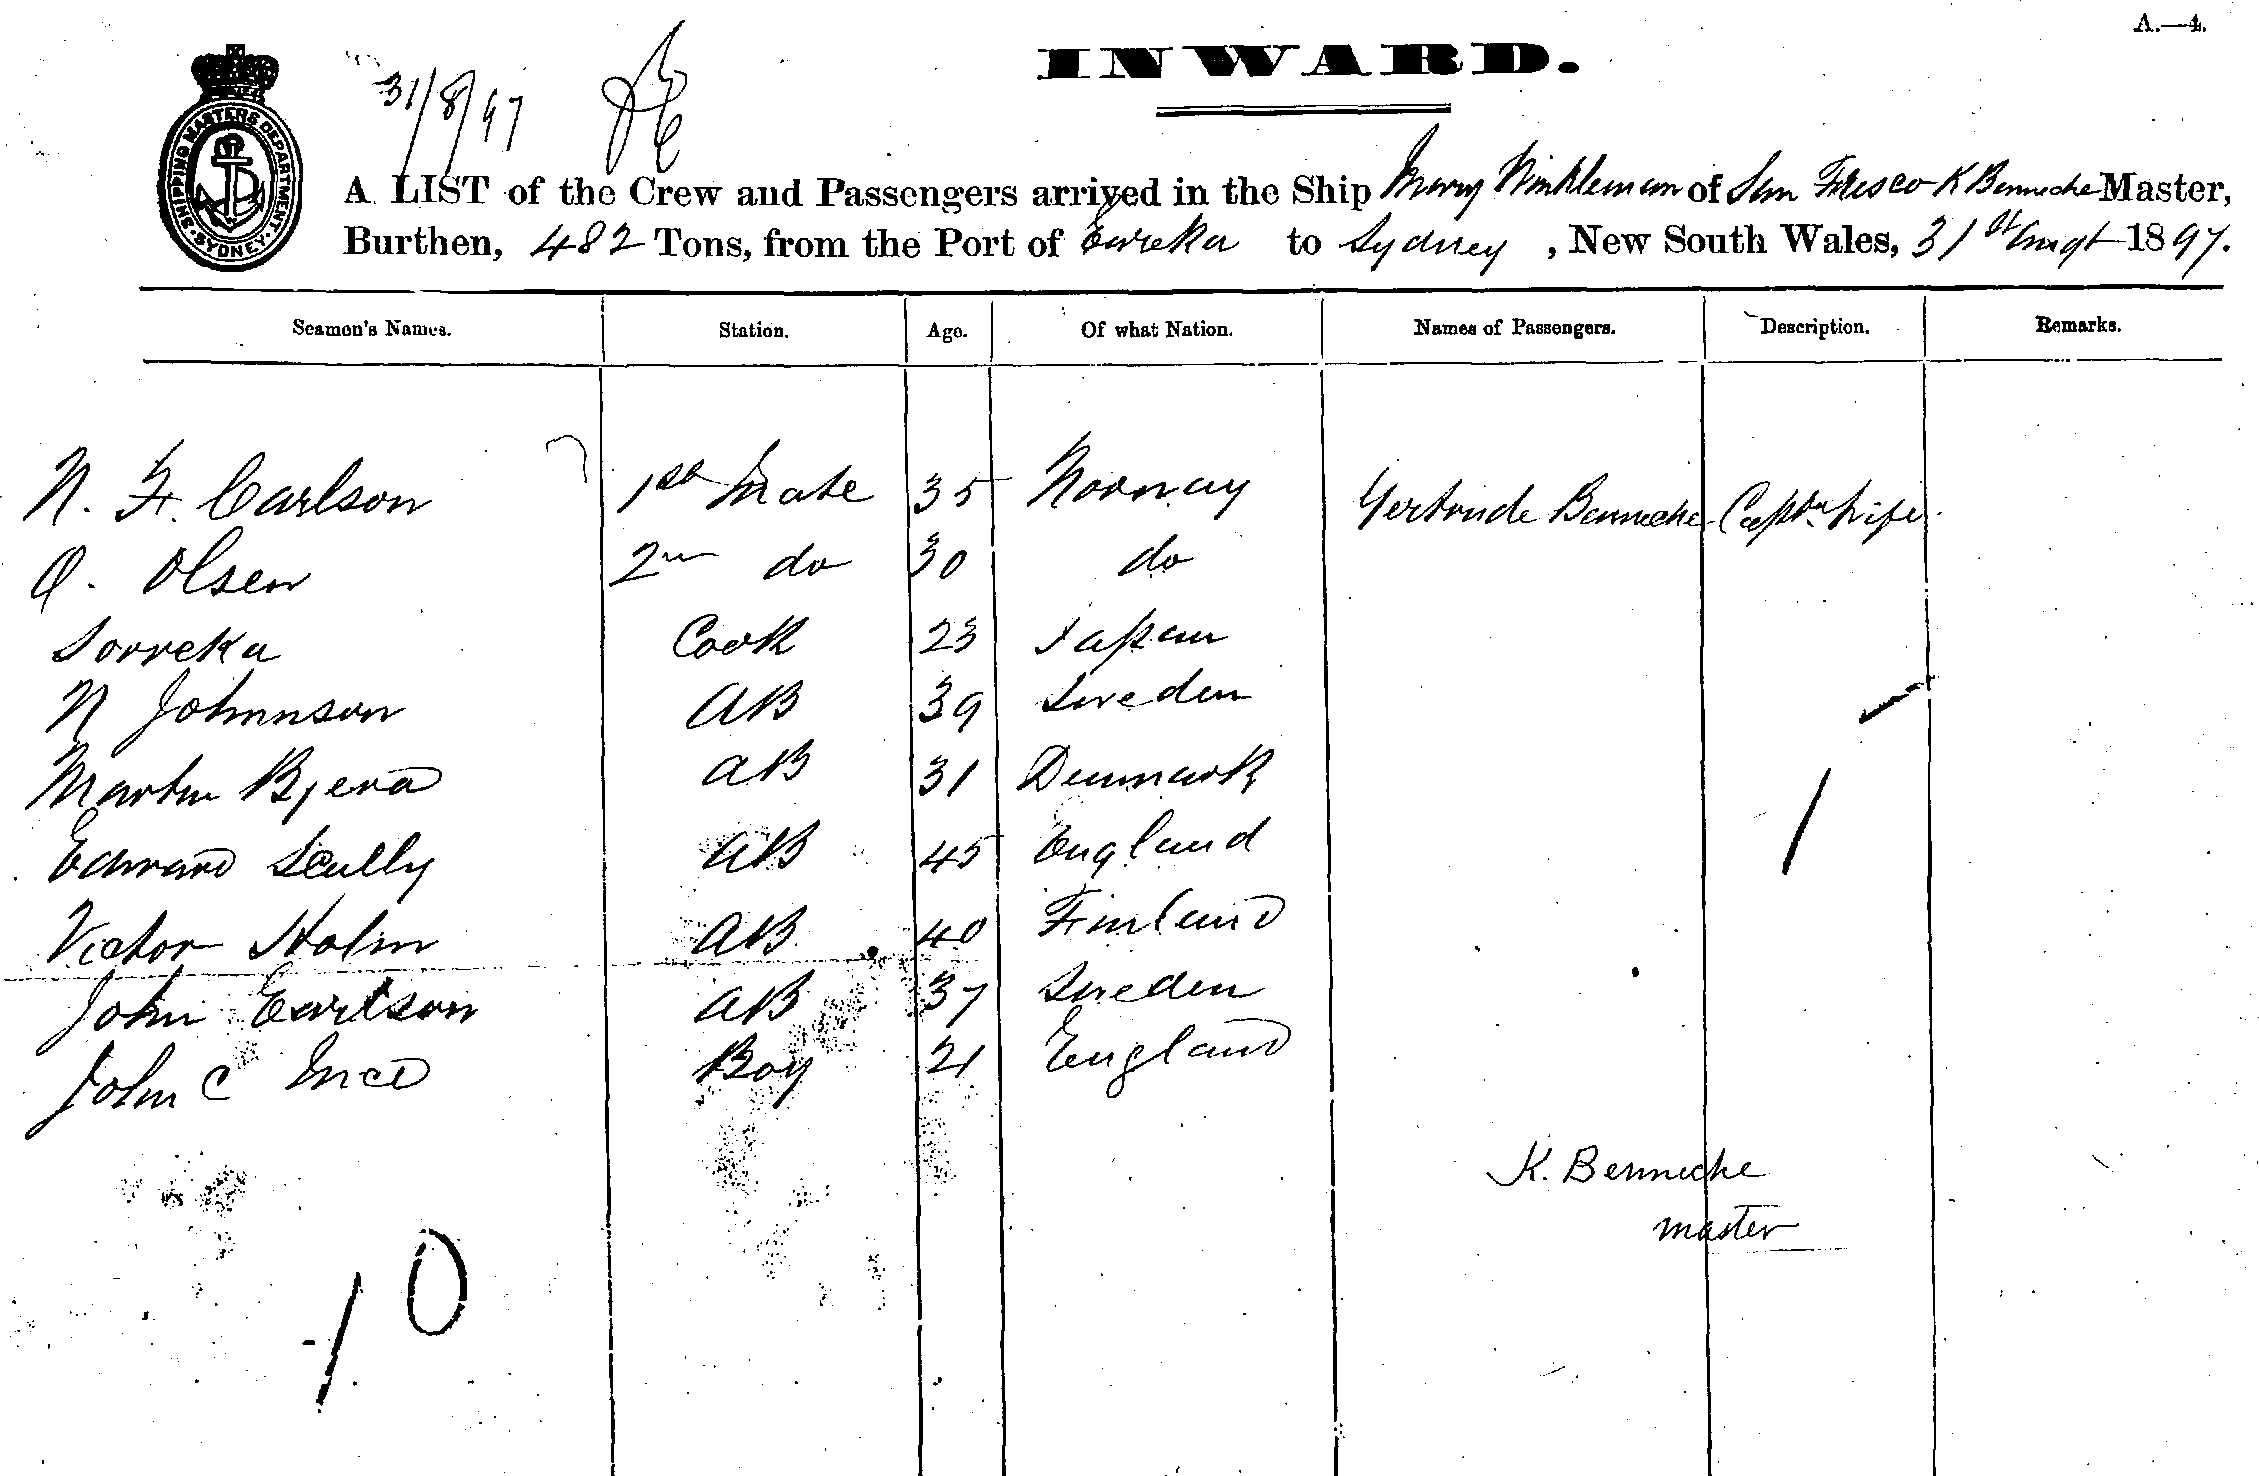 A.—4.
INWARD.
31/8/97
SHIPPING MASTERS DEPARTMENT. SYDNEY.
A LIST of the Crew and Passengers arrived in the Ship Mary Winkleman of San Frisco K Bennecke Master,
Burthen, 482 Tons, from the Port of Eureka to Sydney, New South Wales, 31st Augt 1897.
Seamen's Names. Station. Age. Of what Nation. Names of Passengers. Description. Remarks.
N. F. Carlson 1st Mate 35 Norway Gertrude Bennecke Captn Wife
O. Olsen 2nd do 30 do
Sorreka Cook 23 Japan
N Johnnson AB 39 Sweden
Martin Bjera AB 31 Denmark
Edward Scully AB 45 England
Victor Holm AB 40 Finland
John Earlson AB 37 Sweden
John C Ince Boy 21 England
1
K. Bennecke
master
10